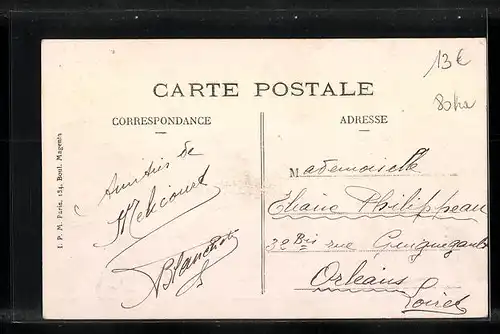 13€
80ks
CARTE POSTALE
CORRESPONDANCE
ADRESSE
I. P. M. Paris, 154, Boul. Magenta
Amitiés de
Mélicourt
Blanchet
Mademoiselle
Eliane Philippeau
32 Bis rue
Orléans
Loiret